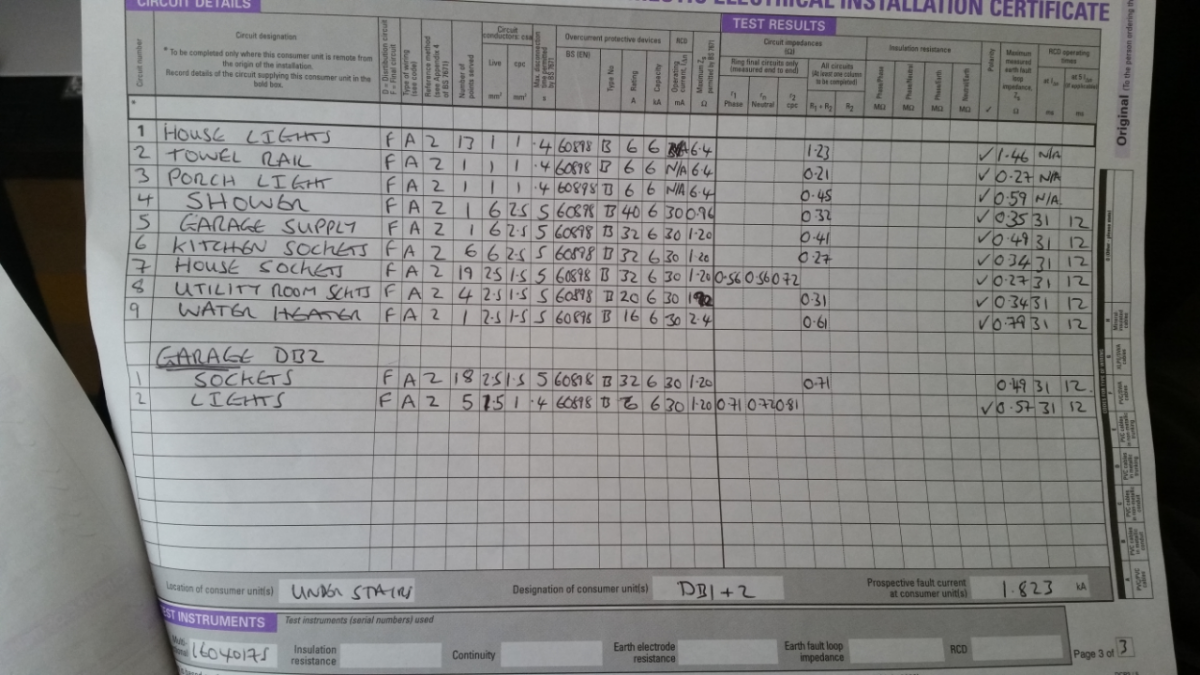 CIRCUIT DETAILS
ELECTRICAL INSTALLATION CERTIFICATE
TEST RESULTS
Circuit number
Circuit designation
* To be completed only where this consumer unit is remote from the origin of the installation.
Record details of the circuit supplying this consumer unit in the bold box.
D = Distribution circuit
F = Final circuit
Type of wiring (see code)
Reference method (see Appendix 4 of BS 7671)
Number of points served
Circuit conductors: csa
Live mm²
cpc mm²
Max. disconnection time permitted by BS 7671 s
Overcurrent protective devices
BS (EN)
Type No
Rating A
Capacity kA
RCD
Operating current, I∆n mA
Maximum Zs permitted by BS 7671 Ω
Circuit impedances (Ω)
Ring final circuits only (measured end to end)
r1 Phase
rn Neutral
r2 cpc
All circuits (At least one column to be completed)
R1 + R2
R2
Insulation resistance
Phase/Phase MΩ
Phase/Neutral MΩ
Phase/Earth MΩ
Neutral/Earth MΩ
Polarity ✓
Maximum measured earth fault loop impedance, Zs Ω
RCD operating times
at I∆n ms
at 5 I∆n (if applicable) ms
*
1 HOUSE LIGHTS F A 2 13 1 1 ·4 60898 B 6 6 N/A 6·4 1·23 ✓ 1·46 N/A
2 TOWEL RAIL F A 2 1 1 1 ·4 60898 B 6 6 N/A 6·4 0·21 ✓ 0·27 N/A
3 PORCH LIGHT F A 2 1 1 1 ·4 60898 B 6 6 N/A 6·4 0·45 ✓ 0·59 N/A
4 SHOWER F A 2 1 6 2·5 5 60898 B 40 6 30 0·96 0·32 ✓ 0·35 31 12
5 GARAGE SUPPLY F A 2 1 6 2·5 5 60898 B 32 6 30 1·20 0·41 ✓ 0·49 31 12
6 KITCHEN SOCKETS F A 2 6 6 2·5 5 60898 B 32 6 30 1·20 0·27 ✓ 0·34 31 12
7 HOUSE SOCKETS F A 2 19 2·5 1·5 5 60898 B 32 6 30 1·20 0·56 0·56 0·72 ✓ 0·27 31 12
8 UTILITY ROOM SCKTS F A 2 4 2·5 1·5 5 60898 B 20 6 30 0·31 ✓ 0·34 31 12
9 WATER HEATER F A 2 1 2·5 1·5 5 60898 B 16 6 30 2·4 0·61 ✓ 0·79 31 12
GARAGE DB2
1 SOCKETS F A 2 18 2·5 1·5 5 60898 B 32 6 30 1·20 0·71 0·49 31 12
2 LIGHTS F A 2 5 1·5 1 ·4 60898 B 6 6 30 1·20 0·71 0·72 0·81 ✓ 0·57 31 12
Location of consumer unit(s) UNDER STAIRS
Designation of consumer unit(s) DB1 + 2
Prospective fault current at consumer unit(s) 1·823 kA
TEST INSTRUMENTS
Test instruments (serial numbers) used
16040175
Insulation resistance
Continuity
Earth electrode resistance
Earth fault loop impedance
RCD
Page 3 of 3
Original (To the person ordering the